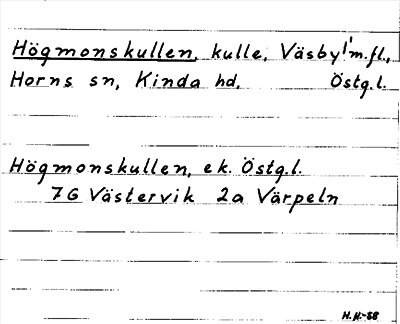 Högmonskullen, kulle, Väsby!' m.fl.,
Horns sn, Kinda hd, Östg.l.
Högmonskullen, ek. Östg.l.
7G Västervik 2a Värpeln
H.H.-88